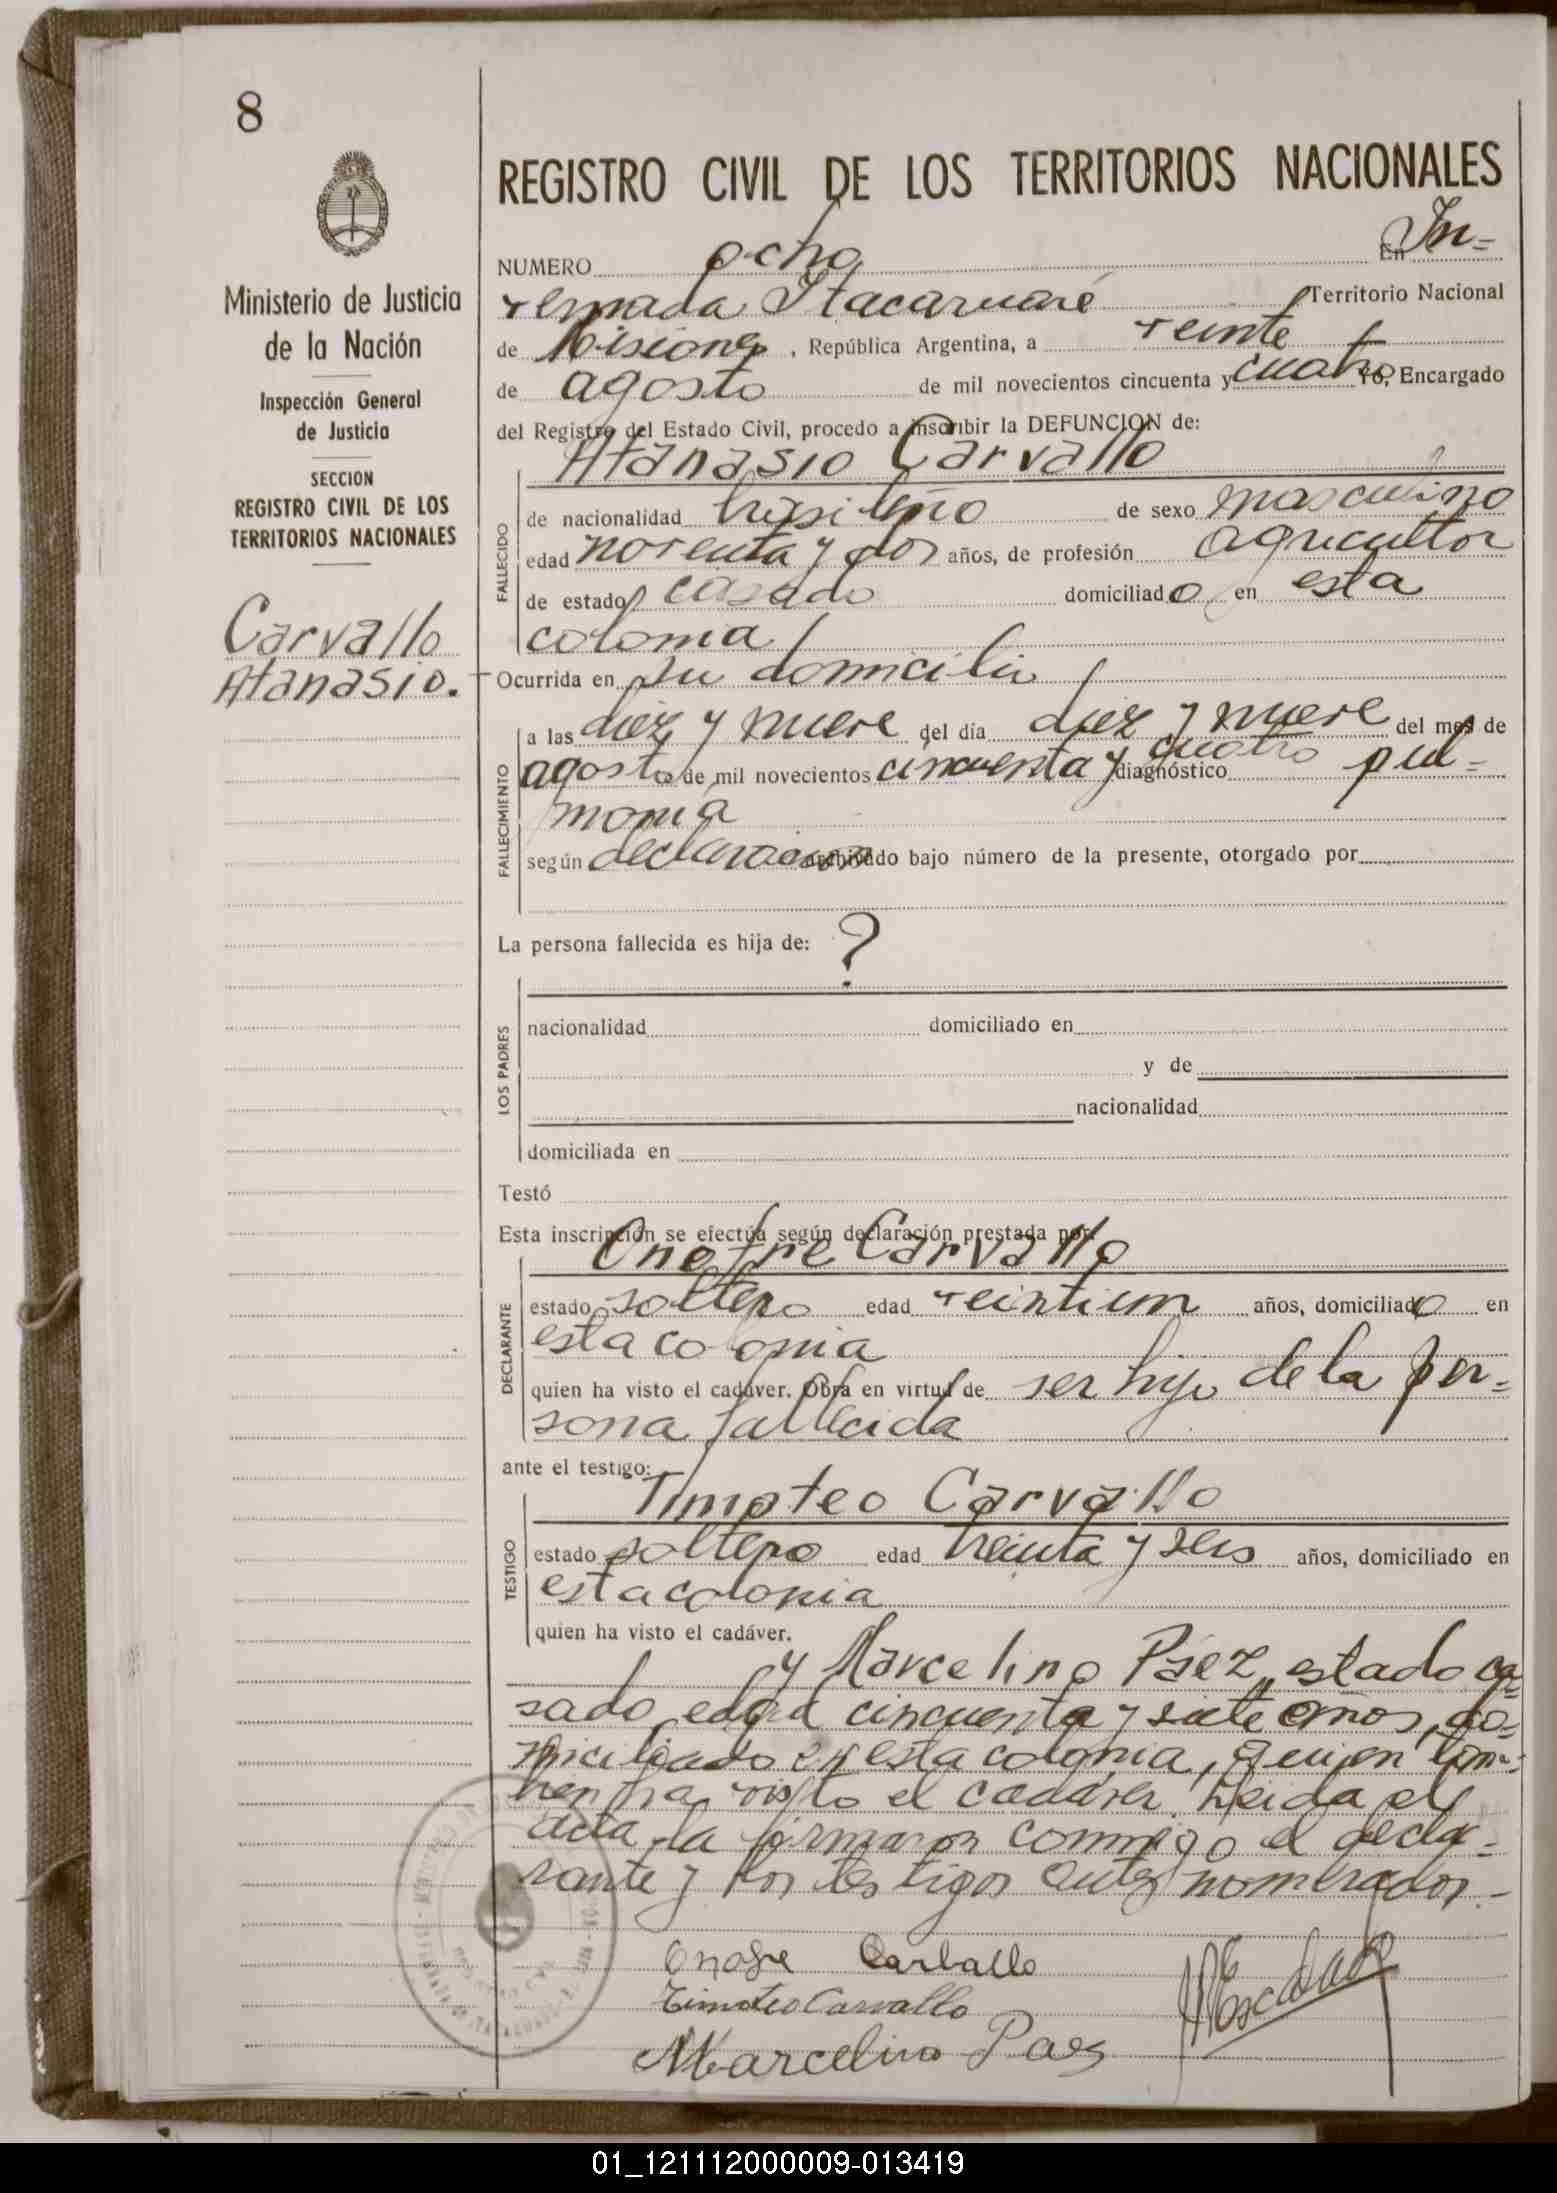 8
REGISTRO CIVIL DE LOS TERRITORIOS NACIONALES
NUMERO ocho En In=
vernada Itacaruaré Territorio Nacional
de Misiones, República Argentina, a veinte
de agosto de mil novecientos cincuenta y cuatro yo, Encargado
del Registro del Estado Civil, procedo a inscribir la DEFUNCION de:
Atanasio Carvallo
FALLECIDO
de nacionalidad brasileño de sexo masculino
edad noventa y dos años, de profesión agricultor
de estado casado domiciliado en esta
colonia
Ocurrida en su domicilio
FALLECIMIENTO
a las diez y nueve del día diez y nueve del mes de
agosto de mil novecientos cincuenta y cuatro diagnóstico pul=
monía
según declaracion archivado bajo número de la presente, otorgado por
La persona fallecida es hija de: ?
LOS PADRES
nacionalidad domiciliado en
y de
nacionalidad
domiciliada en
Testó
Esta inscripción se efectúa según declaración prestada por:
Onofre Carvallo
DECLARANTE
estado soltero edad veintiun años, domiciliado en
esta colonia
quien ha visto el cadáver. Obra en virtud de ser hijo de la per=
sona fallecida
ante el testigo:
Timoteo Carvallo
TESTIGO
estado soltero edad treinta y seis años, domiciliado en
esta colonia
quien ha visto el cadáver.
y Marcelino Páez, estado ca=
sado, edad cincuenta y siete años, do=
miciliado en esta colonia, quien tam=
bien ha visto el cadáver. Leida el
acta la firmaron conmigo el decla=
rante y los testigos antes nombrados.-
Onofre Carballo
Timoteo Carvallo
Marcelino Paes
Ministerio de Justicia
de la Nación
Inspección General
de Justicia
SECCION
REGISTRO CIVIL DE LOS
TERRITORIOS NACIONALES
Carvallo
Atanasio.
01_121112000009-013419